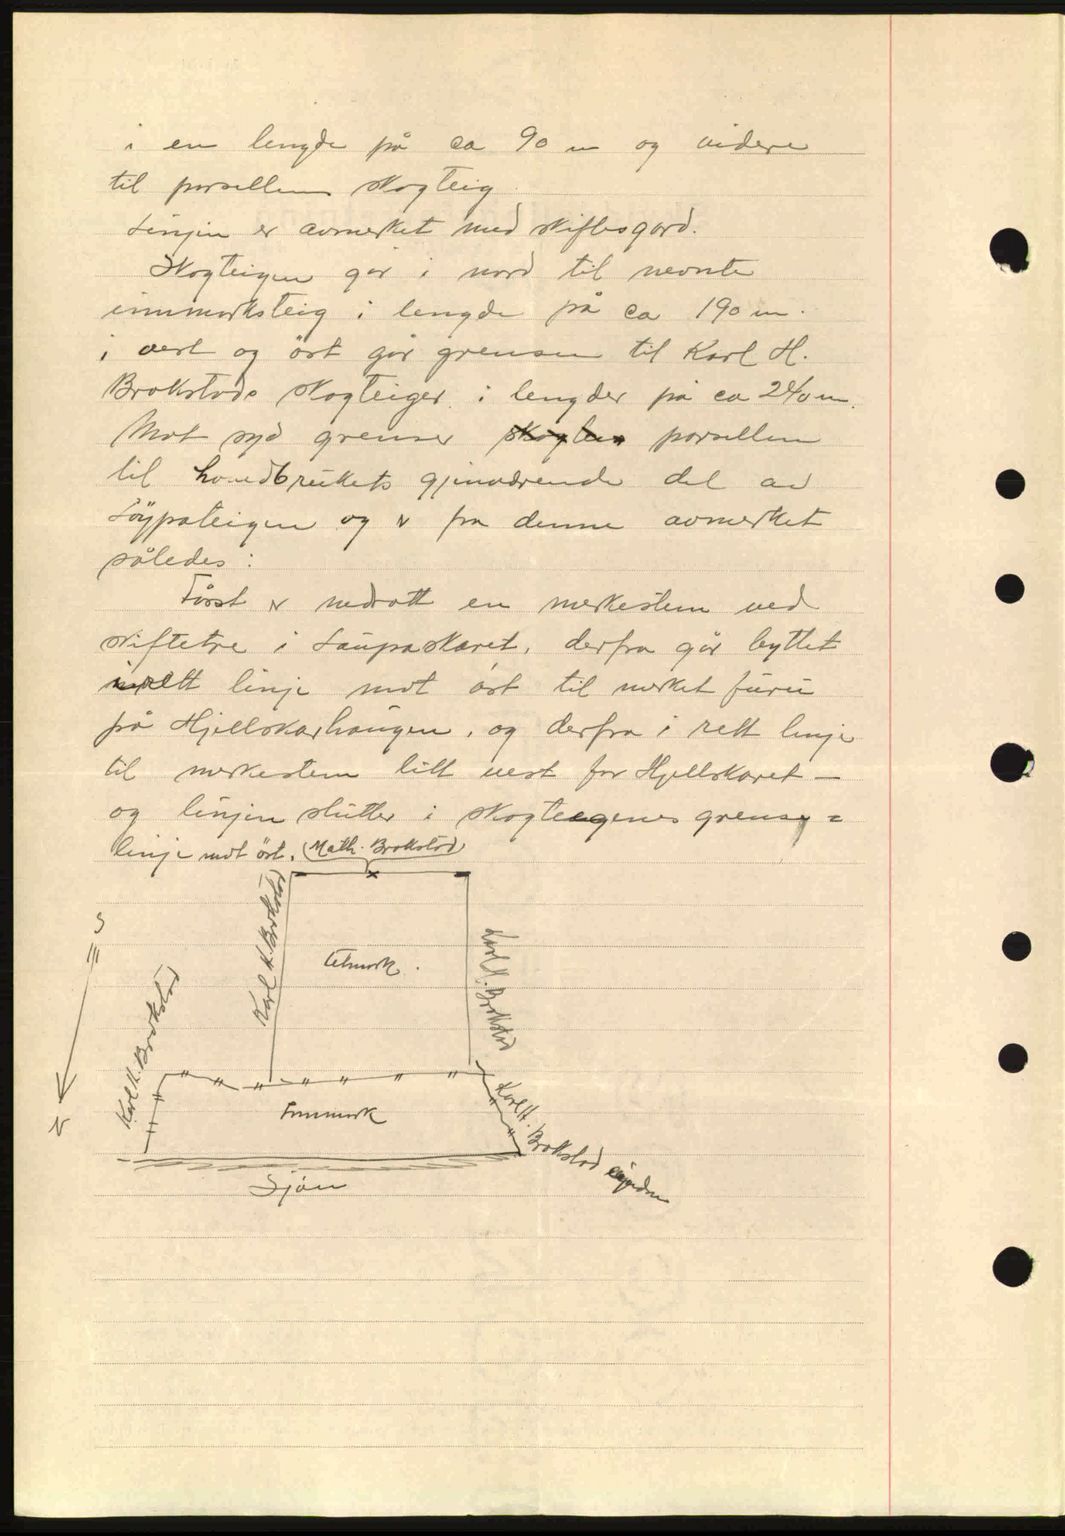 i en lengde på ca 90 m og videre
til parsellens skogteig
Linjen er avmerket med skiftesgard.
Skogteigen går i nord til nevnte
innmarksteig i lengde på ca 190 m.
i vest og öst går grensen til Karl H.
Brokstads skogteiger i lengder på ca 240 m.
Mot syd grenser parsellen
til hovedbrukets gjenværende del av
Löypateigen og er fra denne avmerket
således:
Först er nedsatt en merkesten ved
skiftetre i Laupaskaret, derfra går byttet
i rett linje mot öst til merket furu
på Hjellskarhaugen, og derfra i rett linje
til merkesten litt vest for Hjellskaret –
og linjen slutter i skogteigenes grense=
linje mot öst.
Math. Brokstad
S
Karl H. Brokstad
Utmark.
Karl H. Brokstad
Karl H. Brokstad
N
Innmark
Karl H. Brokstad eiendom
Sjöen